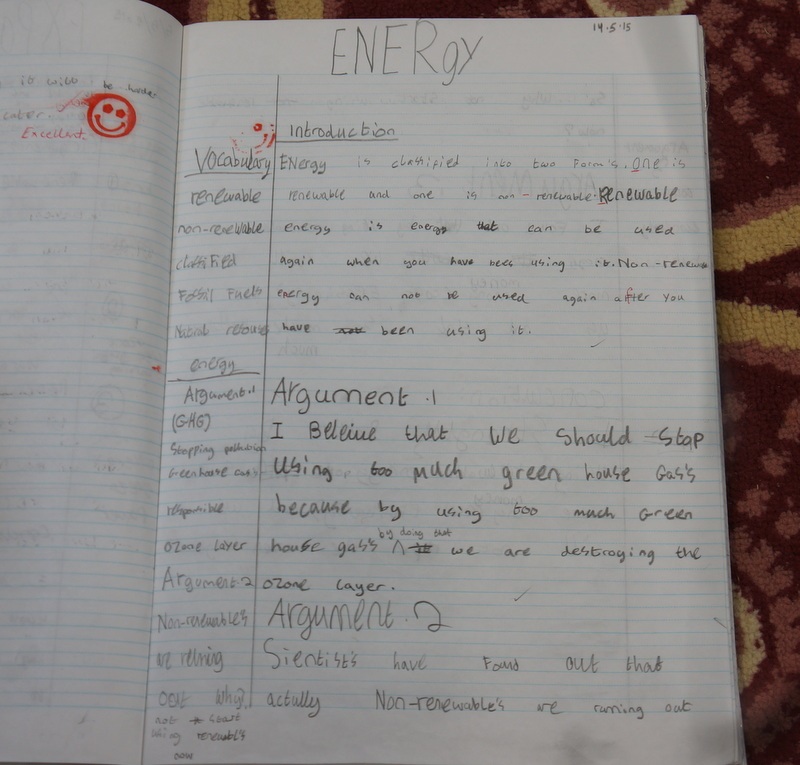 ENERGy
14.5.15
it will be harder
Excellent.
Introduction
Vocabulary
renewable
non-renewable
classified
Fossil Fuels
Natral resours
energy
Argument.1
(GHG)
Stopping pollution
Greenhouse gas's
responsible
ozone layer
Argument.2
Non-renewable's
are
out why?
not start
using renewable's
now
ENergy is classified into two Form's. One is
renewable and one is non-renewable. Renewable
energy is energy that can be used
again when you have been using it. Non-renewable
energy can not be used again after you
have been using it.
Argument .1
I Beleive that We should Stop
Using too much green house Gas's
because by using too much Green
by doing that
house gas's ^ we are destroying the
ozone layer.
Argument.2
Sientist's have Found out that
actully Non-renewable's are running out